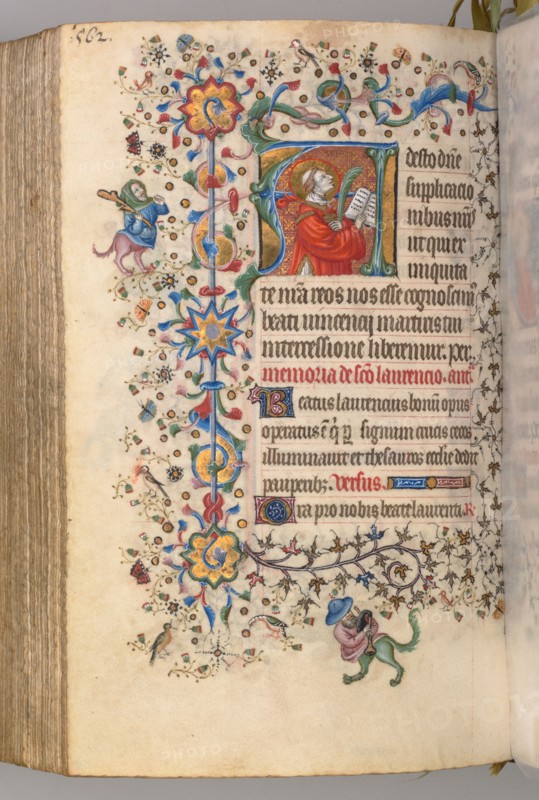 562.
Adesto dñe
supplicatio
nibus nr̄is
ut qui ex
iniquita
te nr̄a reos nos esse cognoscim᷒
beati vincencij martiris tui
intercessione liberemur. per.
memoria de sc̄o laurencio. ant̄.
Beatus laurencius bonū opus
operatus ē q̇ ꝑ signum crucis cecos
illuminavit et thesauros ecclīe dedit
pauperibꝫ. Versus.
Ora pro nobis beate laurenti. R̄